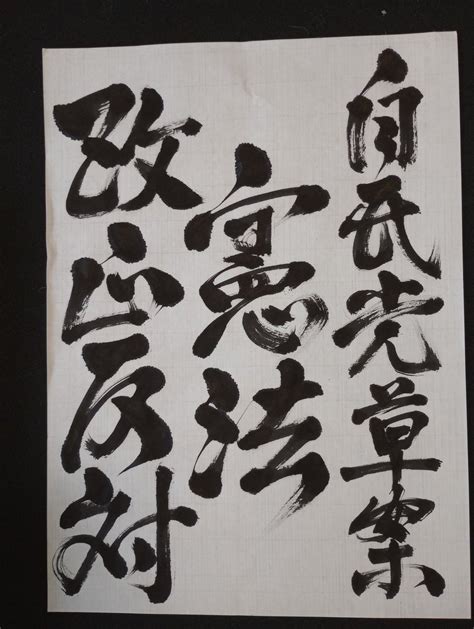 自民党草案
憲法
改正反対